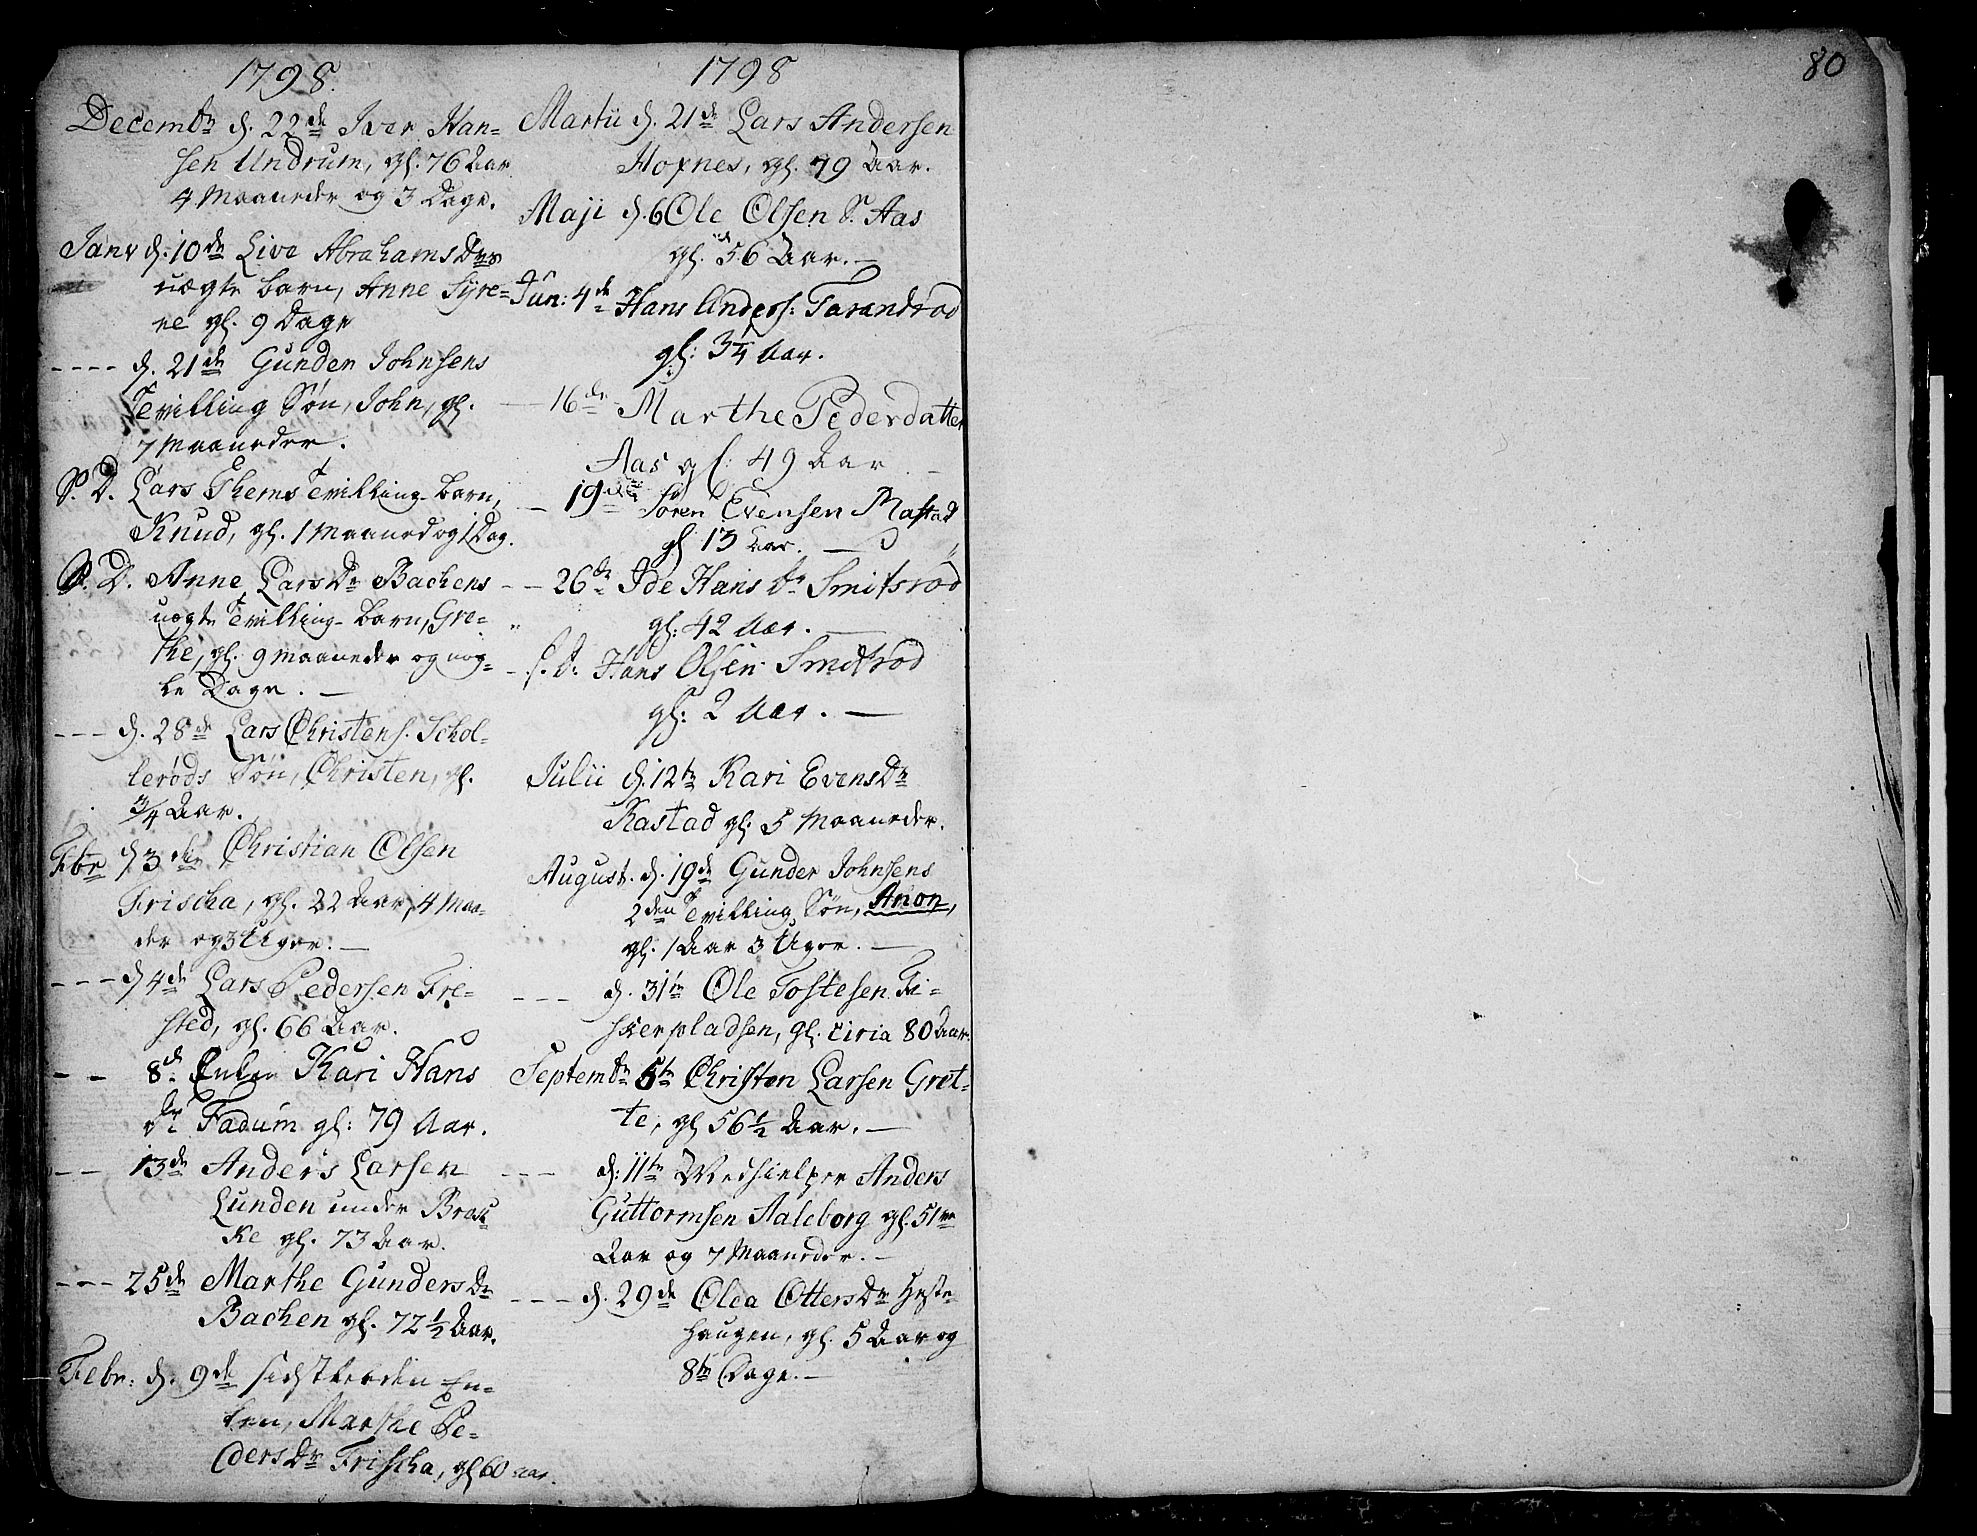 1798.
Decembr d. 22de Iver Han=
sen Undrum, gl. 76 Aar
4 Maaneder og 3 Dage.
Janr d. 10de Live Abrahams Drs
uægte Barn, Anne Syre=
ne gl. 9 Dage
---- d. 21de Gunder Johnsens
Tvilling Søn, John, gl.
7 Maaneder.
S. D. Lars Thems Tvilling-Barn,
Knud, gl. 1 Maaned og 1 Dag.
S. D. Anne Lars Dr Bachens
uægte Tvilling-Barn, Gre=
the, gl. 9 Maaneder og nog=
le Dage. —
--- d. 28de Lars Christens. Schol=
lerøds Søn, Christen, gl.
3/4 Aar.
Febr d 3die Christian Olsen
Frischa, gl. 22 Aar, 4 Maa=
der og 3 Uger. —
--- d 4de Lars Pedersen Fre=
sted, gl. 66 Aar.
-- 8de Enken Kari Hans
dr Fadum gl: 79 Aar.
-- 13de Anders Larsen
Lunden under Bros
ke gl. 73 Aar.
--- 25de Marthe Gunders Dr
Bachen gl. 72 1/2 Aar.
Febr: d. 9de sidstleeden En=
ken, Marthe Pe=
ders Dr Frischa, gl 60 aar.
1798
Martii d. 21de Lars Andersen
Hoxnes, gl. 79 Aar.
Maji d. 6 Ole Olsen S. Aas
gl. 56 Aar. —
Jun: 4de Hans Anders: Tarandrod
gl: 3 1/4 Aar.
— 16de Marthe Pederdatter
Aas gl: 49 Aar —
— 19de Søren Evensen Rastad
gl 13 Aar. —
-- 26de Ide Hans Dr Smitsrod
gl: 42 Aar. —
- s. d: Hans Olsen Smitsrod
gl: 2 Aar. —
Julii d. 12te Kari Evens Dr
Rastad gl. 5 Maaneder.
August. d. 19de Gunder Johnsens
2den Tvilling Søn, Anon,
gl. 1 Aar 3 Uger. —
--- d. 31te Ole Tostesen Fi=
skerpladsen, gl. circa 80 Aar.
Septembr 5te Christen Larsen Gret=
te, gl 56 1/2 Aar. —
--- d: 11te Medhielper Anders
Guttormsen Aaleborg gl. 51
Aar og 7 Maaneder. —
--- d. 29de Olea Otters Dr Heste=
haugen, gl. 5 Aar og
8te Dage. —
80